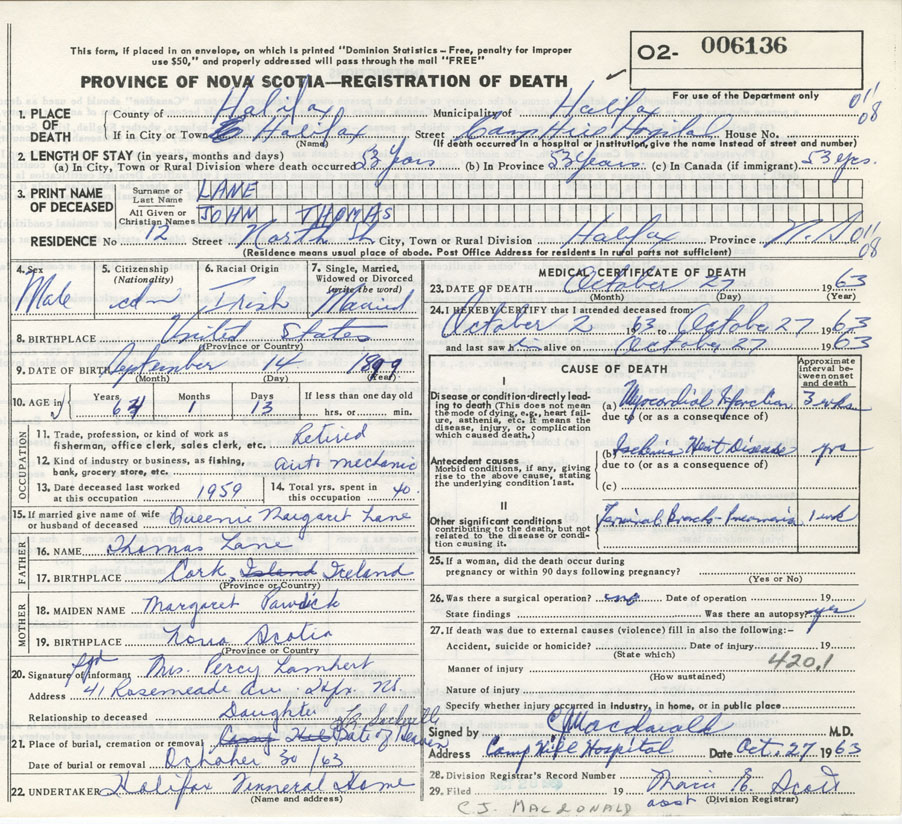 This form, if placed in an envelope, on which is printed "Dominion Statistics - Free, penalty for improper
use $50," and properly addressed will pass through the mail "FREE"
O2- 006136
PROVINCE OF NOVA SCOTIA—REGISTRATION OF DEATH
For use of the Department only
1. PLACE OF DEATH
County of Halifax Municipality of Halifax 011 08
If in City or Town Halifax (Name) Street Camp Hill Hospital House No.
(If death occurred in a hospital or institution, give the name instead of street and number)
2. LENGTH OF STAY (in years, months and days)
(a) In City, Town or Rural Division where death occurred 53 Years (b) In Province 53 Years (c) In Canada (if immigrant) 53 yrs.
3. PRINT NAME OF DECEASED
Surname or Last Name LANE
All Given or Christian Names JOHN THOMAS
RESIDENCE No 12 Street North St City, Town or Rural Division Halifax Province N.S. 011 08
(Residence means usual place of abode. Post Office Address for residents in rural parts not sufficient)
4. Sex Male
5. Citizenship (Nationality) cdn
6. Racial Origin Irish
7. Single, Married, Widowed or Divorced (write the word) Married
8. BIRTHPLACE United States
(Province or Country)
9. DATE OF BIRTH September 14 1899
(Month) (Day) (Year)
10. AGE in Years 64 Months 1 Days 13 If less than one day old
hrs. or min.
OCCUPATION
11. Trade, profession, or kind of work as fisherman, office clerk, sales clerk, etc. Retired
12. Kind of industry or business, as fishing, bank, grocery store, etc. auto mechanic
13. Date deceased last worked at this occupation 1959
14. Total yrs. spent in this occupation 40.
15. If married give name of wife or husband of deceased Queenie Margaret Lane
FATHER
16. NAME Thomas Lane
17. BIRTHPLACE Cork, Island Ireland
(Province or Country)
MOTHER
18. MAIDEN NAME Margaret
19. BIRTHPLACE Nova Scotia
(Province or Country)
20. Signature of informant Mrs. Percy Lambert
Address 41 Rosemeade Av. Hfx. NS.
Relationship to deceased Daughter
21. Place of burial, cremation or removal Gate of Heaven
Date of burial or removal October 30/63
22. UNDERTAKER Halifax Funneral Home
(Name and address)
MEDICAL CERTIFICATE OF DEATH
23. DATE OF DEATH October 27 1963
(Month) (Day) (Year)
24. I HEREBY CERTIFY that I attended deceased from:
October 2 1963 to October 27 1963
and last saw him alive on October 27 1963
CAUSE OF DEATH
Approximate interval between onset and death
I
Disease or condition directly leading to death (This does not mean the mode of dying, e.g., heart failure, asthenia, etc. It means the disease, injury, or complication which caused death.)
(a) Myocardial Infarction 3 wks
due to (or as a consequence of)
Antecedent causes
Morbid conditions, if any, giving rise to the above cause, stating the underlying condition last.
(b) Ischemic Heart Disease yrs
due to (or as a consequence of)
(c)
II
Other significant conditions
contributing to the death, but not related to the disease or condition causing it.
Terminal Broncho-Pneumonia 1 wk
25. If a woman, did the death occur during
pregnancy or within 90 days following pregnancy?
(Yes or No)
26. Was there a surgical operation? no Date of operation 19
State findings Was there an autopsy? yes
27. If death was due to external causes (violence) fill in also the following:—
Accident, suicide or homicide? Date of injury 19
(State which)
420.1
Manner of injury
(How sustained)
Nature of injury
Specify whether injury occurred in industry, in home, or in public place
Signed by CJMacdonald M.D.
Address Camp Hill Hospital Date Oct. 27 1963
28. Division Registrar's Record Number
29. Filed 19 E. Scott
asst (Division Registrar)
C.J. MACDONALD